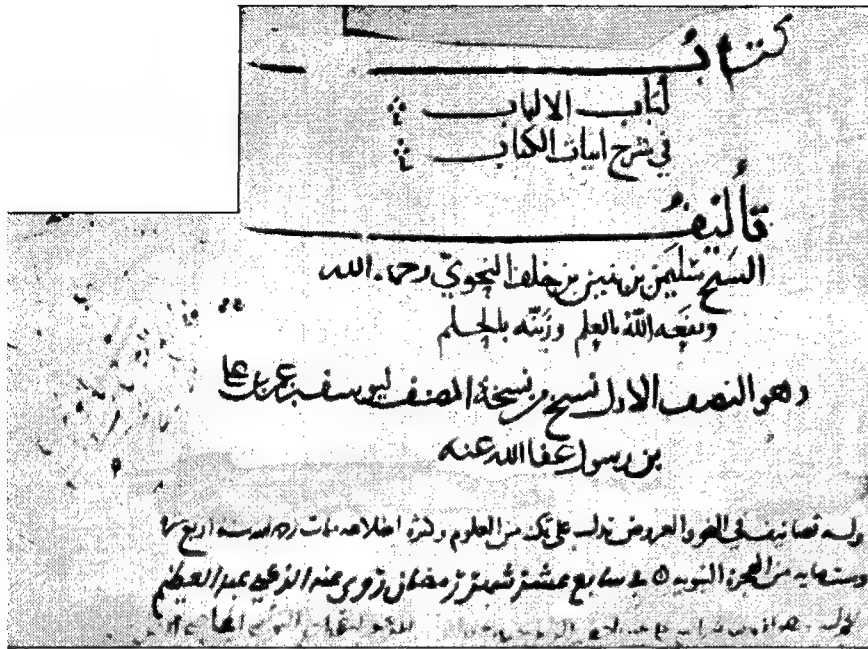 كتاب
لُبَاب الالباب
في شرح ابيات الكتاب
تأليفُ
الشيخ سليمن بن بنين بن خلف النحويّ رحمه الله
ونفعه اللّه بالعلم وزينه بالحلم
وهو النصف الاول نسخ من نسخة المصنف ليوسف بن عمر بن علي
بن رسول عفا الله عنه
وله تصانيف في النحو والعروض تدل على تمكنه من العلوم وكثرة اطلاعه مات رحمه الله سنة اربع
وستمايه من الهجرة النبويه في سابع عشر شهر رمضان روى عنه الزكي عبد العظيم